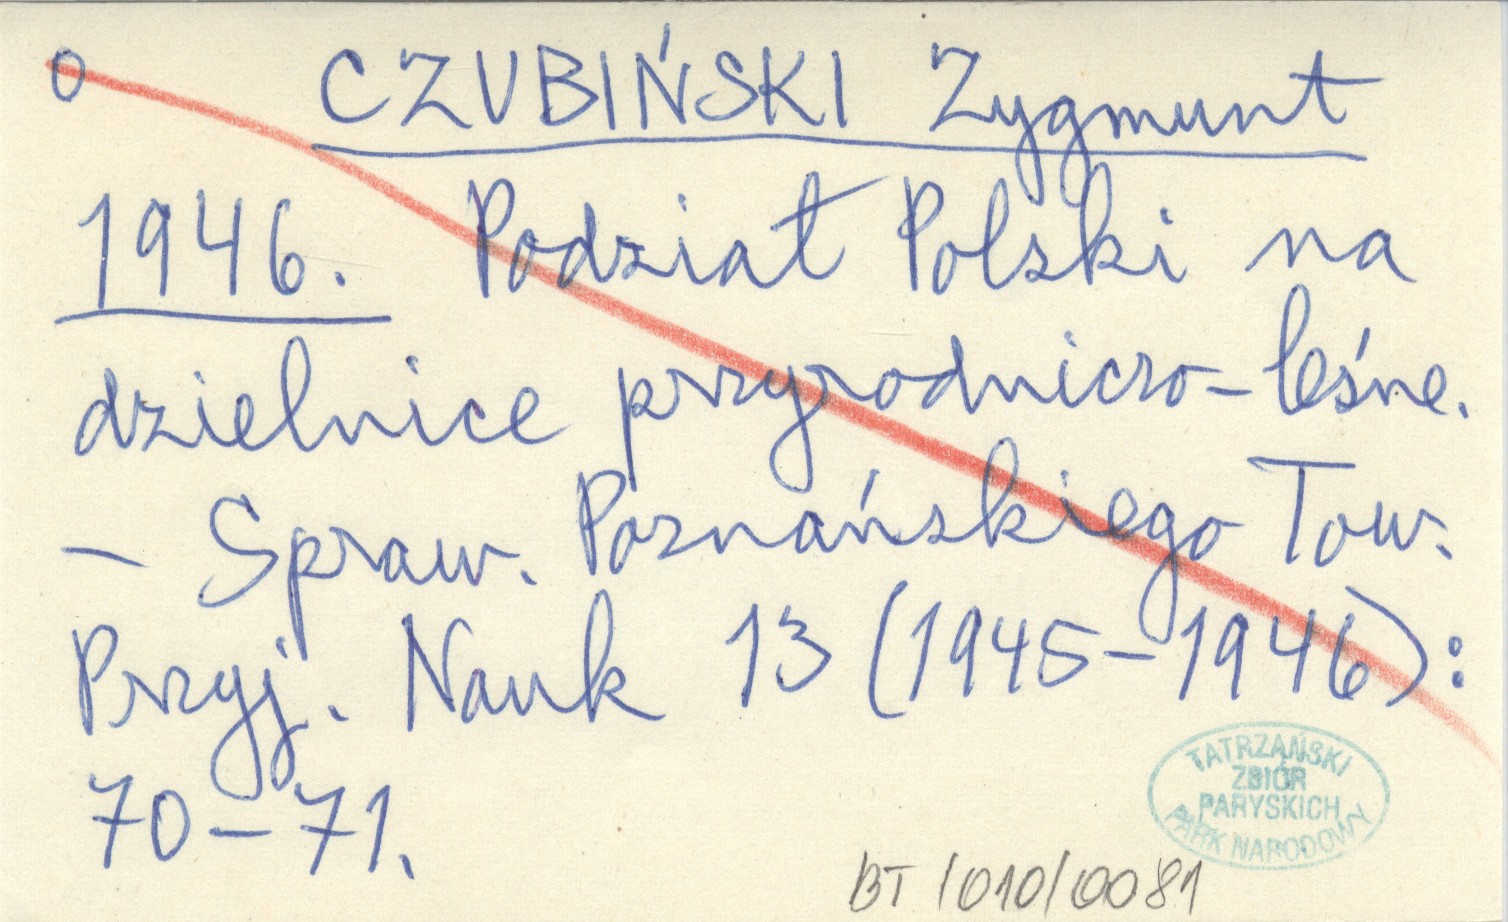 O CZUBIŃSKI Zygmunt
1946. Podział Polski na
dzielnice przyrodniczo-leśne.
- Spraw. Poznańskiego Tow.
Przyj. Nauk 13 (1945-1946):
70-71.
TATRZAŃSKI
ZBIÓR
PARYSKICH
PARK NARODOWY
BT/010/0081